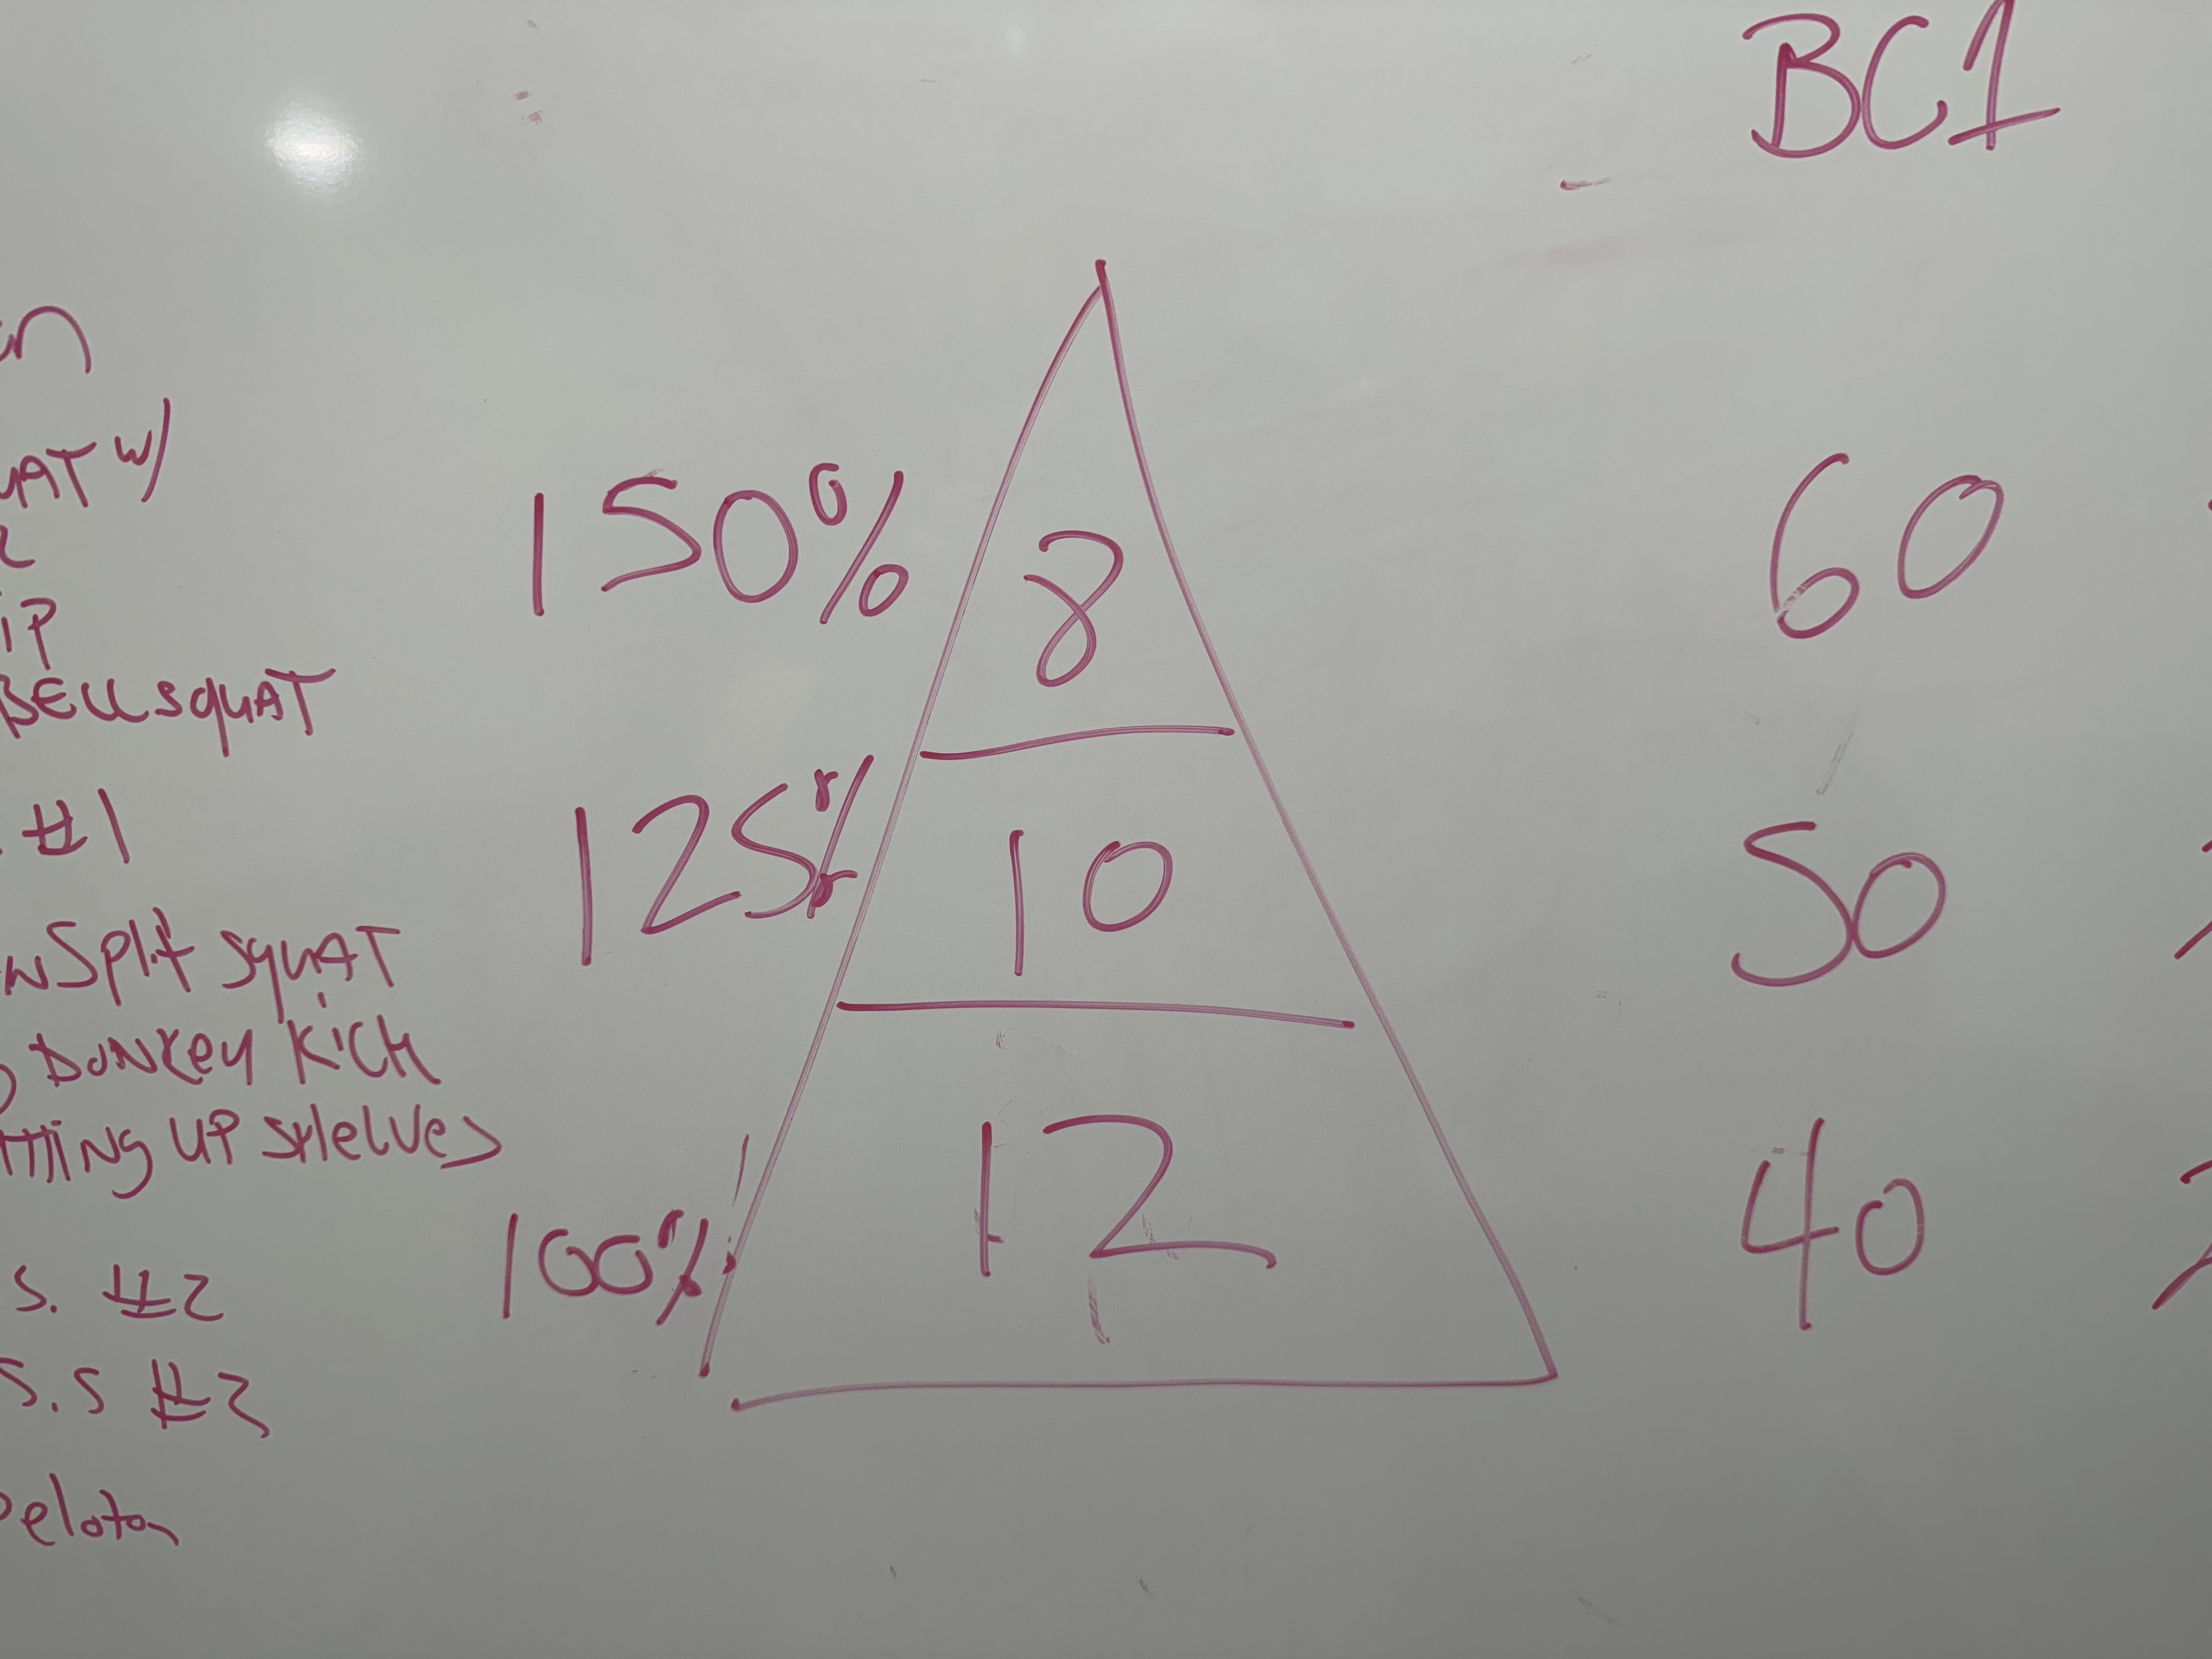 BC1
UAT w/
iP
BELLSQUAT
#1
Split SQUAT
DONKEY KICK
TTING UP SHELVES
S. #2
S.S #3
Peloton
150%
8
60
125%
10
50
100%
12
40